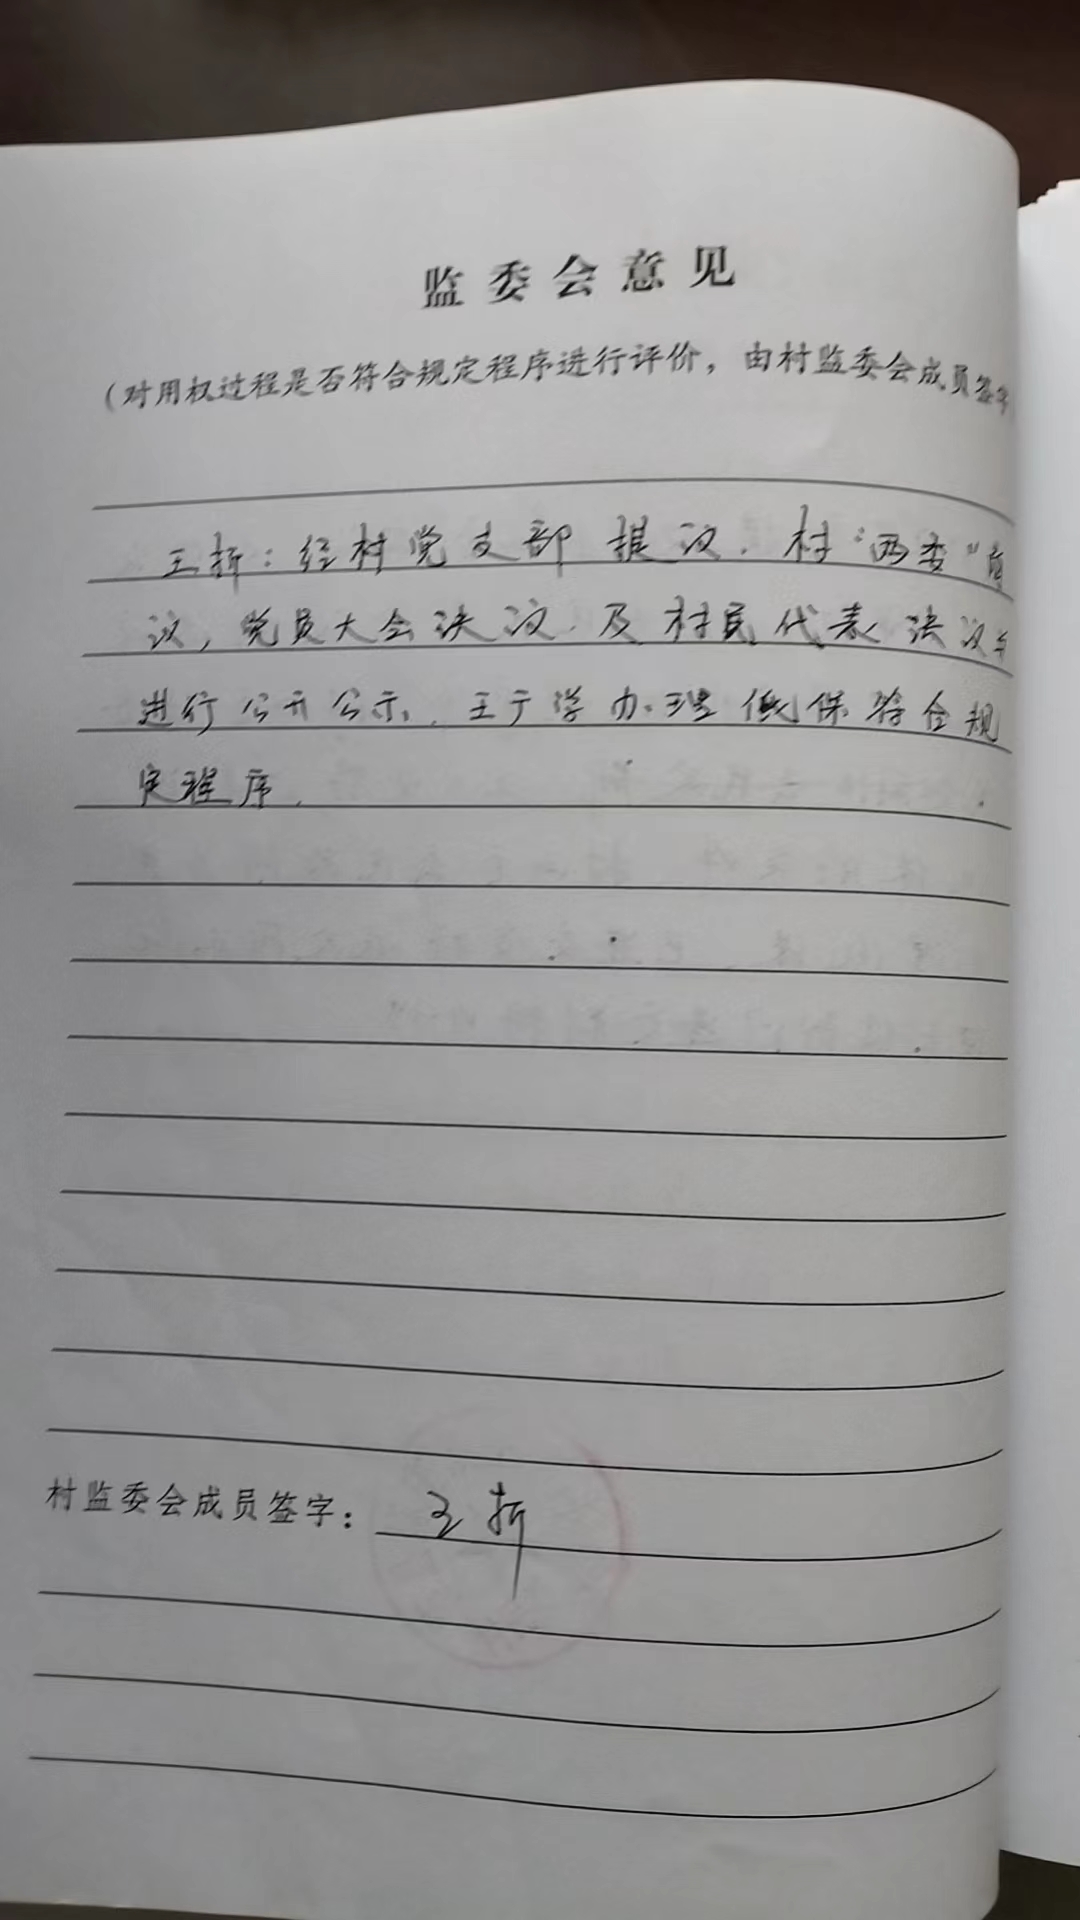 监委会意见
（对用权过程是否符合规定程序进行评价，由村监委会成员签字
王折：经村党支部提议，村“两委”商
议，党员大会决议，及村民代表决议并
进行公开公示，王于学办理低保符合规
定程序．
村监委会成员签字：王折